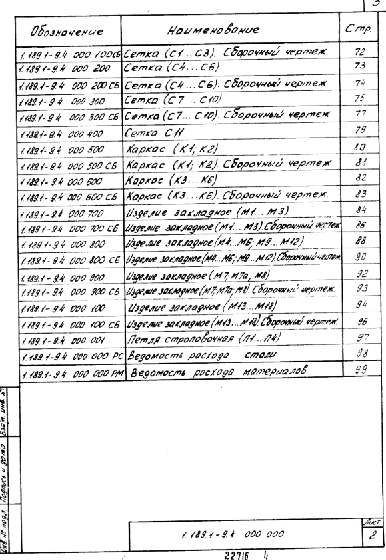 3
Обозначение Наименование Стр.
1.189.1-9.4 000 100 СБ Сетка (С1...С3). Сборочный чертеж 72
1.189.1-9.4 000 200 Сетка (С4...С6) 73
1.189.1-9.4 000 200 СБ Сетка (С4...С6). Сборочный чертеж 74
1.189.1-9.4 000 300 Сетка (С7...С10) 75
1.189.1-9.4 000 300 СБ Сетка (С7...С10). Сборочный чертеж 77
1.189.1-9.4 000 400 Сетка С11 79
1.189.1-9.4 000 500 Каркас (К1, К2) 80
1.189.1-9.4 000 500 СБ Каркас (К1, К2). Сборочный чертеж 81
1.189.1-9.4 000 600 Каркас (К3...К6) 82
1.189.1-9.4 000 600 СБ Каркас (К3...К6). Сборочный чертеж 83
1.189.1-9.4 000 700 Изделие закладное (М1...М3) 84
1.189.1-9.4 000 700 СБ Изделие закладное (М1...М3). Сборочный чертеж 86
1.189.1-9.4 000 800 Изделие закладное (М4...М6, М9...М12) 88
1.189.1-9.4 000 800 СБ Изделие закладное (М4...М6, М9...М12). Сборочный чертеж 90
1.189.1-9.4 000 900 Изделие закладное (М7, М7а, М8) 92
1.189.1-9.4 000 900 СБ Изделие закладное (М7, М7а, М8). Сборочный чертеж 93
1.189.1-9.4 000 100 Изделие закладное (М13...М18) 94
1.189.1-9.4 000 100 СБ Изделие закладное (М13...М18). Сборочный чертеж 96
1.189.1-9.4 000 001 Петля строповочная (П1...П4) 97
1.189.1-9.4 000 000 РС Ведомость расхода стали 98
1.189.1-9.4 000 000 РМ Ведомость расхода материалов 99
Инв. № подл. Подпись и дата Взам. инв. №
1.189.1-9.4 000 000
Лист
2
22716 4